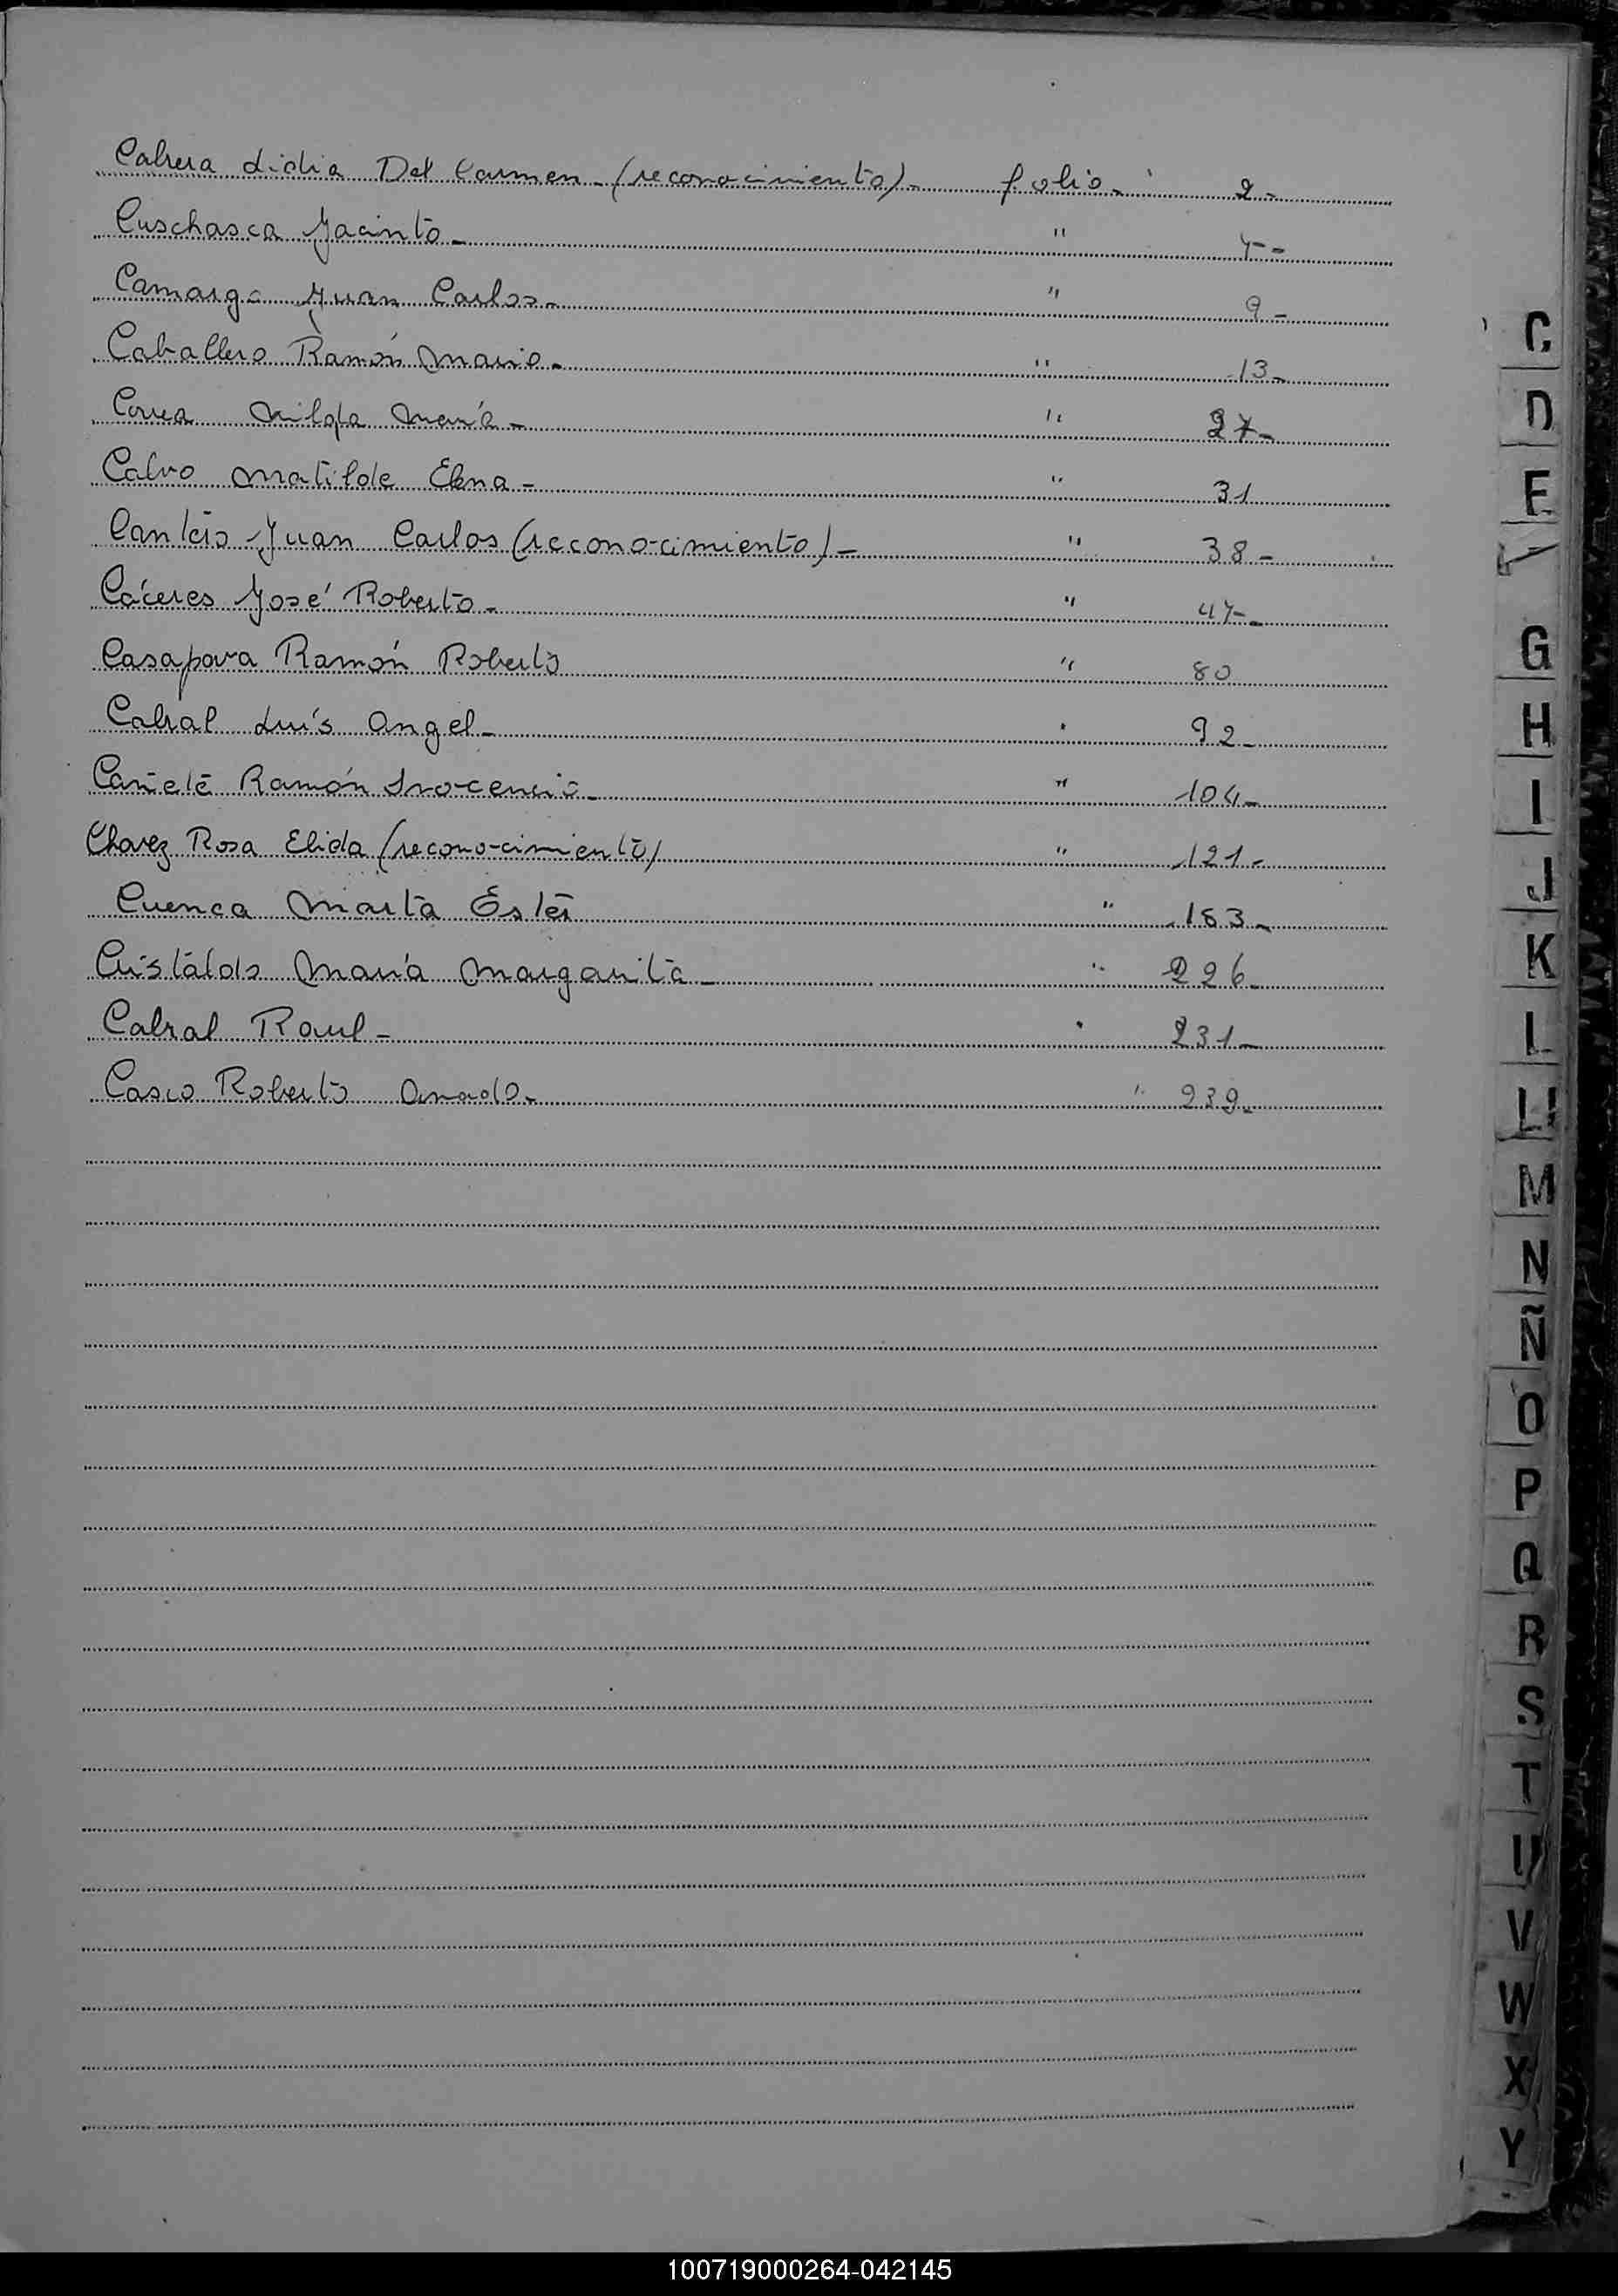 Cabrera Lidia Del Carmen - (reconocimiento) - folio - 2 -
Cuschasca Jacinto - " 7 -
Camargo Juan Carlos - " 9 -
Caballero Ramón Mario - " 13 -
Correa Nilda María - " 27 -
Calvo Matilde Elena - " 31
Juan Carlos (reconocimiento) - " 38 -
Cáceres José Roberto - " 47 -
Ramón Roberto " 80
Cabral Luís Angel - " 92 -
Cañete Ramón Inocencio - " 104 -
Chavez Rosa Elida (reconocimiento) " 121 -
Cuenca Marta Ester " 183 -
Cristaldo María Margarita - " 226 -
Cabral Raul - " 231 -
Casco Roberto Amado - " 239 -
C
D
E
G
H
I
J
K
L
LL
M
N
Ñ
O
P
Q
R
S
T
U
V
W
X
Y
100719000264-042145